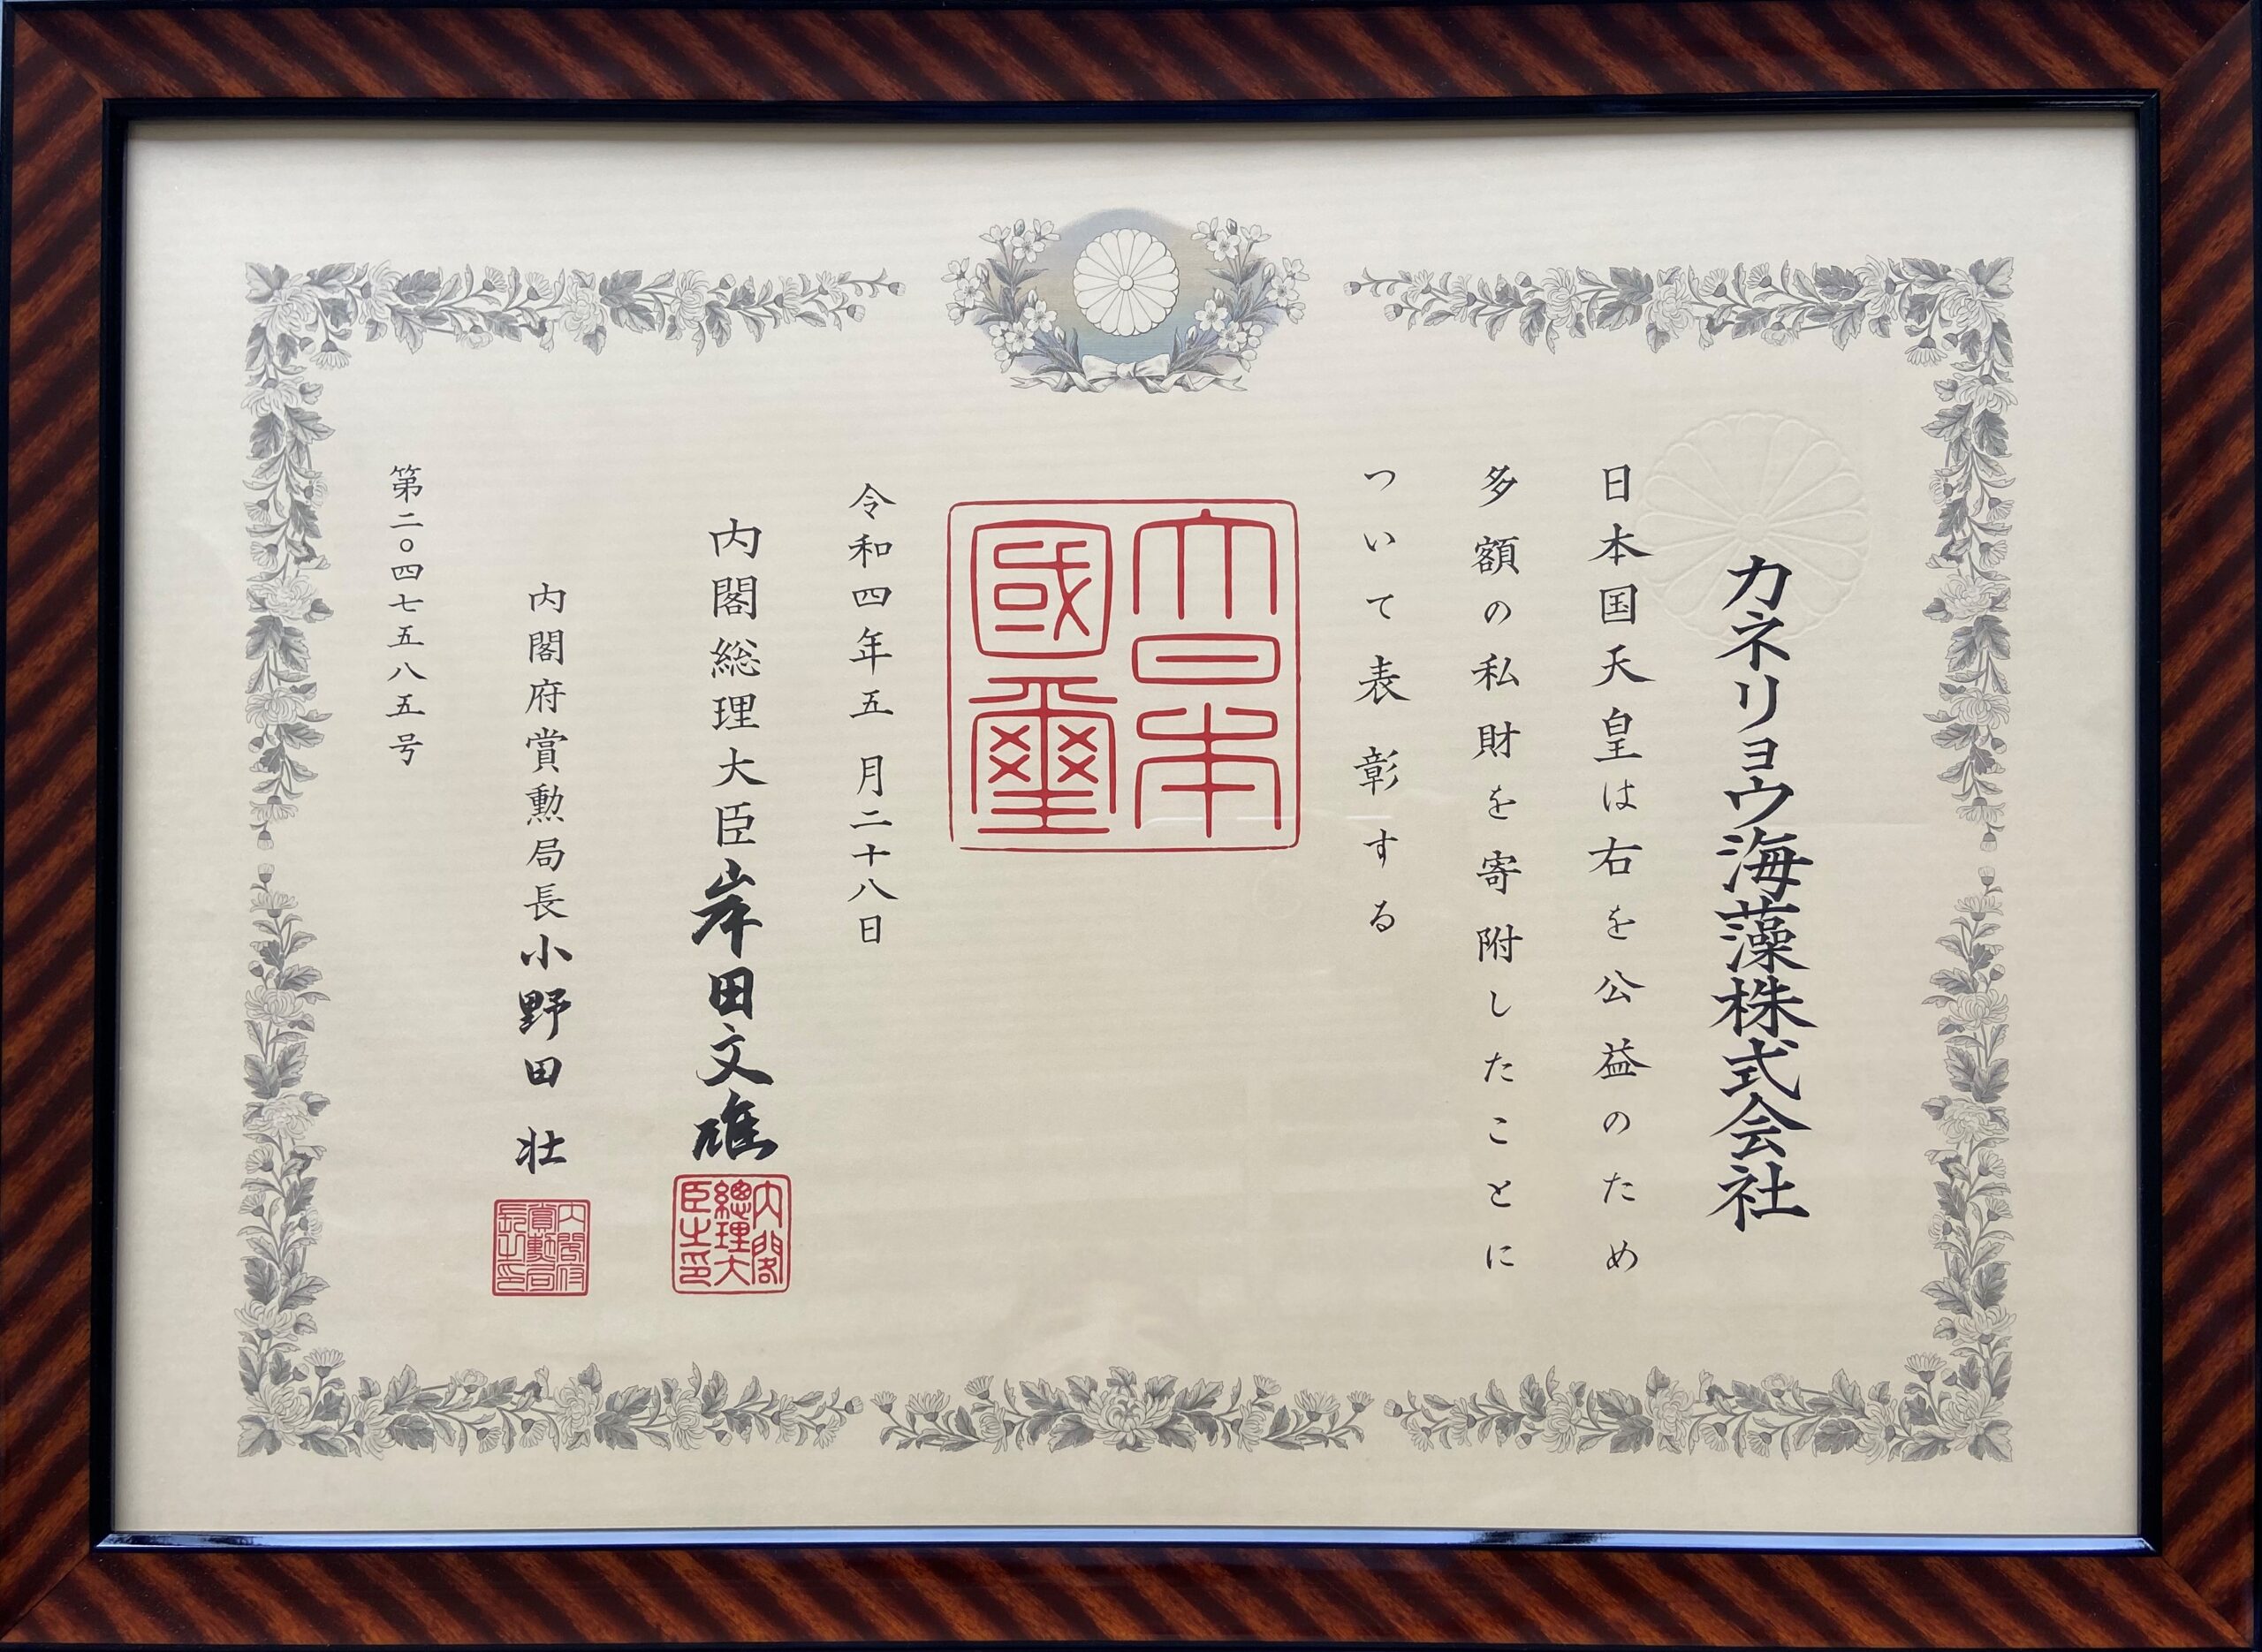 カネリョウ海藻株式会社
日本国天皇は右を公益のため
多額の私財を寄附したことに
ついて表彰する
大日本
國璽
令和四年五月二十八日
内閣総理大臣岸田文雄
内閣
總理大
臣之印
内閣府賞勲局長小野田壮
内閣府
賞勳局
長之印
第二〇四七五八五号